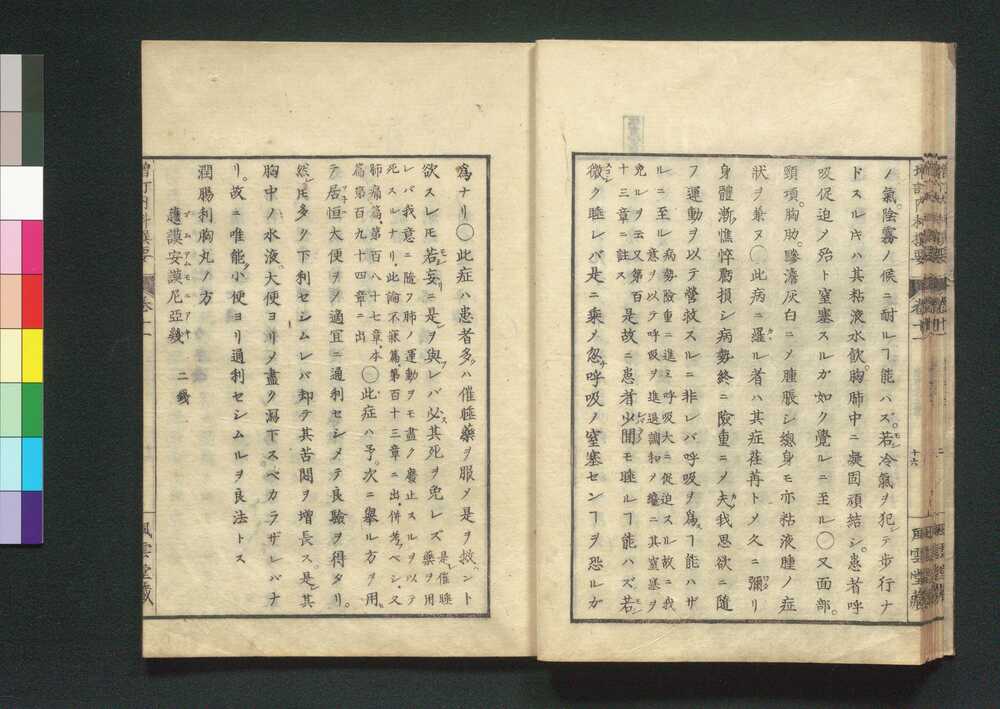 ノ氣。陰霧ノ候ニ耐ルヿ能ハス。若冷氣ヲ犯シテ歩行ナ
ドスルキハ其粘液水飲。胸肺中ニ凝固頑結シ。患者呼
吸促迫ノ殆ト窒塞スルガ如ク覺ルニ至ル〇又面部。
頸項。胸肋。黲澹灰白ニノ腫脹シ。總身モ亦粘液腫ノ症
狀ヲ兼ヌ〇此病ニ羅ル者ハ其症荏苒トノ久ニ彌リ
身體漸憔悴羸損シ病勢終ニ險重ニノ夫我思欲ニ隨
フ運動ヲ以テ營救スルニ非レバ呼吸ヲ爲スヿ能ハザ
ルニ至ル病勢險重ニ進ミ呼吸大ニ促迫スル故ニ我意ヲ以テ呼吸ヲ進退調和ノ纔ニ其窒塞ヲ
免ルヲ云又第百十三章ニ註ス是故ニ患者少間モ睡ルヿ能ハズ若
微ク睡レバ是ニ乘ノ忽呼吸ノ窒塞センヿヲ恐ルガ
増訂内科撰要
十六
風雲堂藏
爲ナリ〇此症ハ患者多ハ催睡藥ヲ服メ是ヲ救ント
欲スレモ若妄ニ是ヲ與レバ必其死ヲ免レズ是催睡藥ヲ用
レバ我意ニ隨フ肺ノ運動ヲモ盡ク廢止スルヲ以テ死スルナリ。此論不寐篇第百十三章ニ出。併考ベシ。又
肺痛篇。第百八十七章。水篇第百九十四章ニ出〇此症ハ予。次ニ擧ル方ヲ用
テ居恒大便ヲノ適宜ニ通利セシメテ良驗ヲ得タリ。
然モ多ク下利セシムレバ却テ其苦悶ヲ增長ス。是其
胸中ノ水液。大便ヨリノ盡ク瀉下スベカラザレバナ
リ。故ニ唯能小便ヨリ通利セシムルヲ良法トス
潤腸利胸丸ノ方
護謨安謨尼亞幾　二錢
増訂内科撰要
卷十一
風雲堂藏